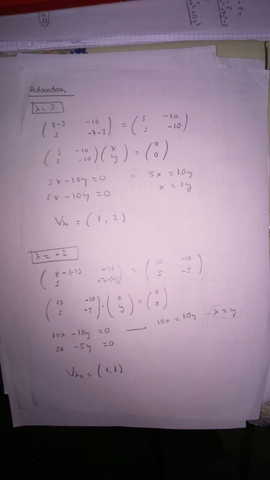 Autovectores
λ = 3
( 8-3 -10 ) = ( 5 -10 )
( 5 -7-3 ) ( 5 -10 )
( 5 -10 ) ( x ) = ( 0 )
( 5 -10 ) ( y ) ( 0 )
5x - 10y = 0 5x = 10y
5x - 10y = 0 x = 2y
Vλ₁ = ( 1, 2 )
λ = -2
( 8-(-2) -10 ) = ( 10 -10 )
( 5 -7-(-2) ) ( 5 -5 )
( 10 -10 ) · ( x ) = ( 0 )
( 5 -5 ) ( y ) ( 0 )
10x - 10y = 0 10x = 10y x = y
5x - 5y = 0
Vλ₂ = ( 1, 1 )